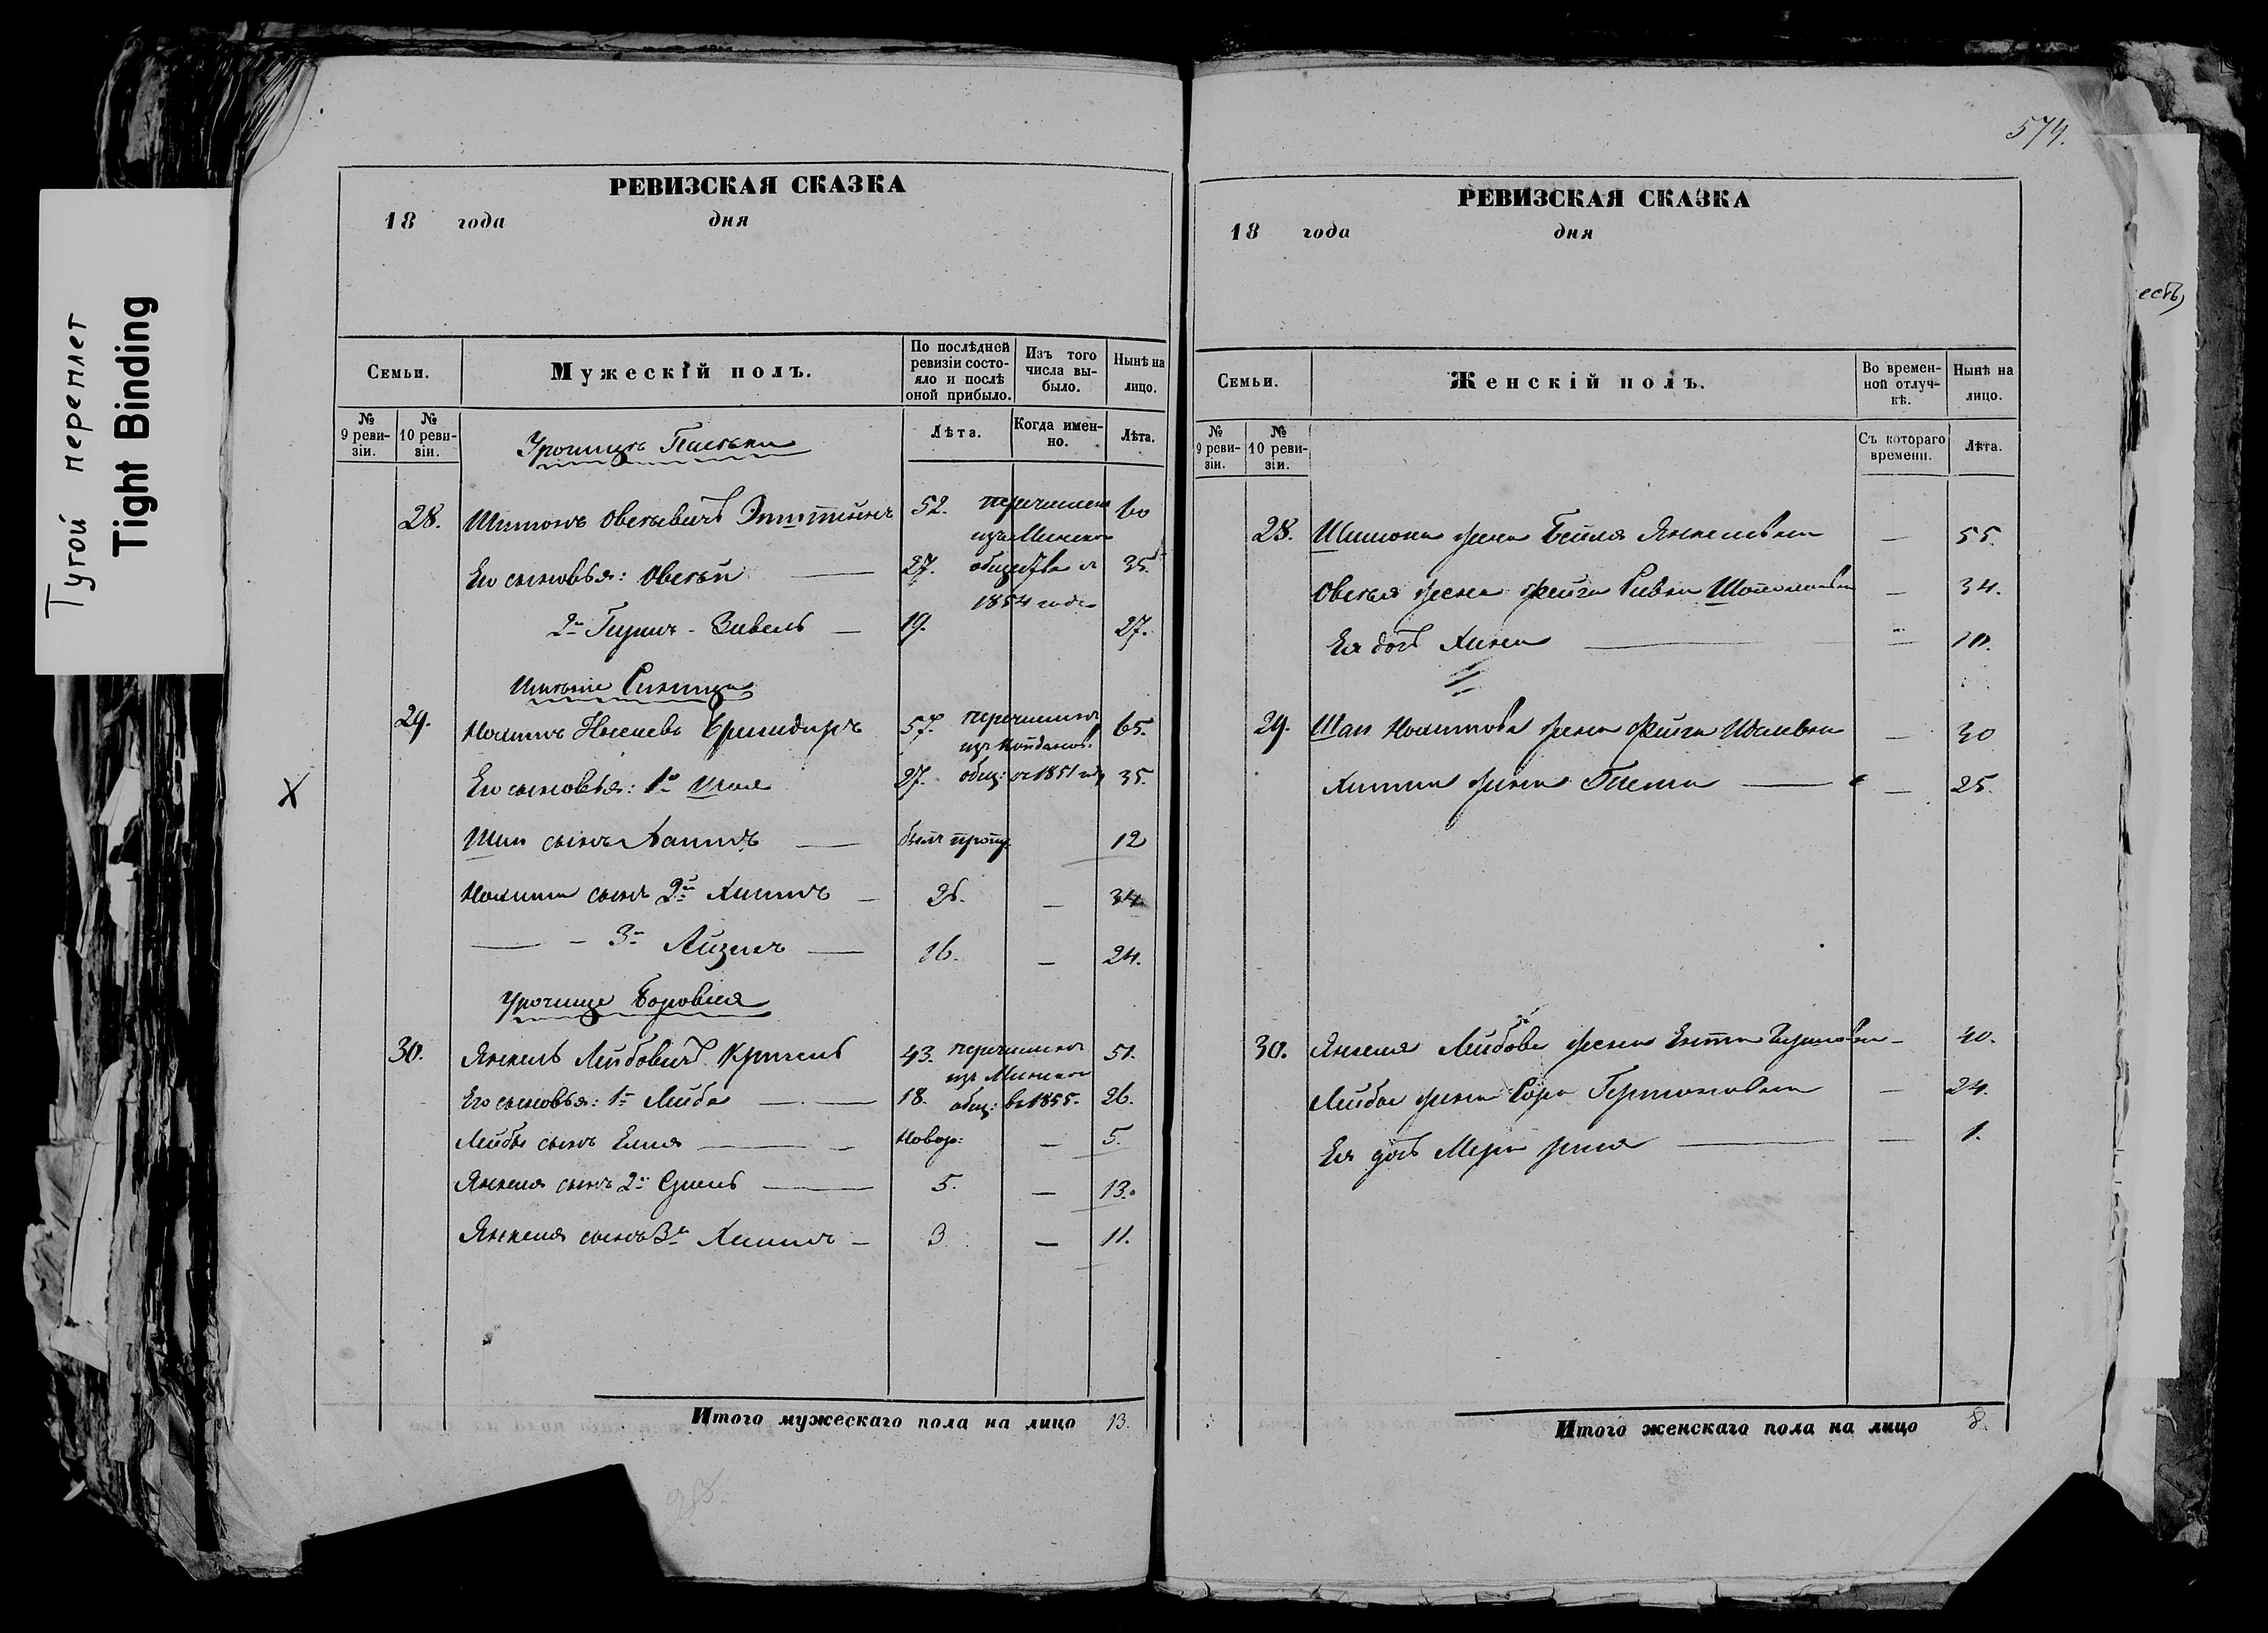 Тугой переплет
Tight Binding
РЕВИЗСКАЯ СКАЗКА
18 года дня
Семьи.
Мужескій полъ.
По послѣдней ревизіи состояло и послѣ оной прибыло.
Изъ того числа выбыло.
Нынѣ на лицо.
№ 9 ревизіи.
№ 10 ревизіи.
Лѣта.
Когда именно.
Лѣта.
Урочище
28. Шимонъ Овсеевичъ 52. перечисленъ 60
изъ Минскаго
Его сыновья: Овсей 27. общества въ 35.
1854 году
2й Гирша - Зивель 19. 27.
Имѣніе
29. Нохимъ 57. перечисленъ 65.
изъ Койданов.
Его сыновья: 1й Шая 27. общ: въ 1851 году 35.
Х
Шаи сынъ 12
Нохима сынъ 2й Хаимъ 26. 34.
3й Айзикъ 16. 24.
Урочище Боровля
30. Янкель Лейбовичъ 43. перечисленъ 51.
изъ Минскаго
Его сыновья: 1й Лейба 18. общ: въ 1855. 26.
Лейбы сынъ Новор: 5.
Янкеля сынъ 2й 5. 13.
Янкеля сынъ 3й Хаимъ 3 11.
Итого мужескаго пола на лицо 13.
574.
РЕВИЗСКАЯ СКАЗКА
18 года дня
Семьи.
Женскій полъ.
Во временной отлучкѣ.
Нынѣ на лицо.
№ 9 ревизіи.
№ 10 ревизіи.
Съ котораго времени.
Лѣта.
есть,
28. Шимона жена Бейля Янкелевна — 55.
Овсея жена Фейга Ривка — 34.
Ея дочь Хана — 10.
29. Шаи Нохимова жена Фейга — 30
Хаима жена — 25.
30. Янкеля Лейбова жена Ента — 40.
Лейбы жена Сора — 24.
Ея дочь Мера — 1.
Итого женскаго пола на лицо 8.